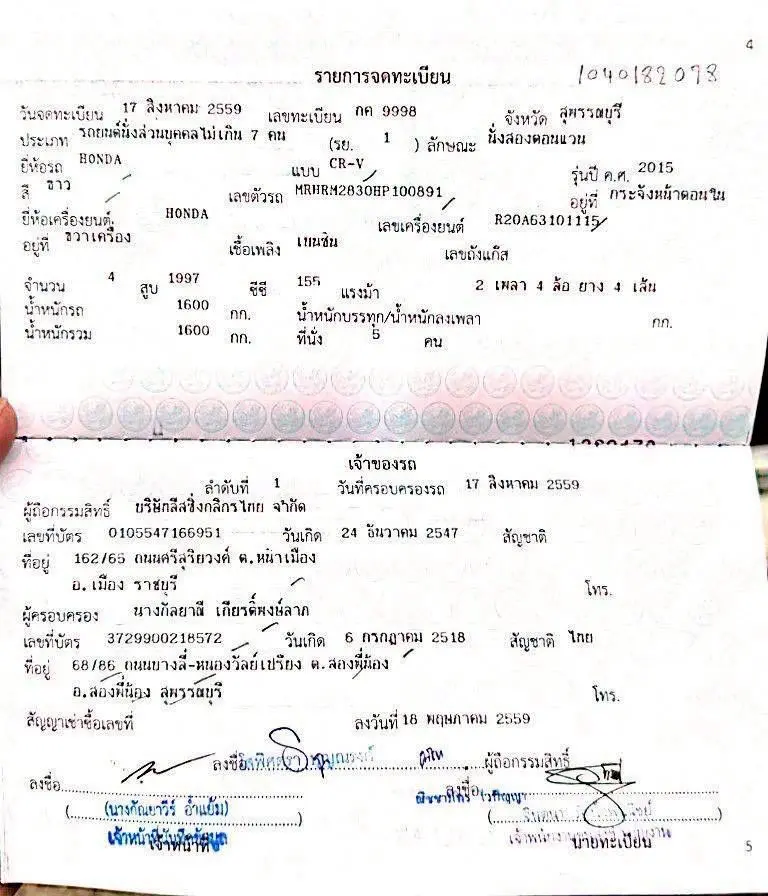 4
รายการจดทะเบียน 1040182078
วันจดทะเบียน 17 สิงหาคม 2559 เลขทะเบียน กค 9998 จังหวัด สุพรรณบุรี
ประเภท รถยนต์นั่งส่วนบุคคลไม่เกิน 7 คน (รย. 1 ) ลักษณะ นั่งสองตอนแวน
ยี่ห้อรถ HONDA แบบ CR-V รุ่นปี ค.ศ. 2015
สี ขาว เลขตัวรถ MRHRM2830HP100891 อยู่ที่ กระจังหน้าตอนใน
ยี่ห้อเครื่องยนต์ HONDA เลขเครื่องยนต์ R20A63101115
อยู่ที่ ขวาเครื่อง เชื้อเพลิง เบนซิน เลขถังแก๊ส
จำนวน 4 สูบ 1997 ซีซี 155 แรงม้า 2 เพลา 4 ล้อ ยาง 4 เส้น
น้ำหนักรถ 1600 กก. น้ำหนักบรรทุก/น้ำหนักลงเพลา กก.
น้ำหนักรวม 1600 กก. ที่นั่ง 5 คน
เจ้าของรถ
ลำดับที่ 1 วันที่ครอบครองรถ 17 สิงหาคม 2559
ผู้ถือกรรมสิทธิ์ บริษัทลีสซิ่งกสิกรไทย จำกัด
เลขที่บัตร 0105547166951 วันเกิด 24 ธันวาคม 2547 สัญชาติ
ที่อยู่ 162/65 ถนนศรีสุริยวงศ์ ต.หน้าเมือง
อ.เมือง ราชบุรี โทร.
ผู้ครอบครอง นางกัลยาณี เกียรติ์พงษ์ลาภ
เลขที่บัตร 3729900218572 วันเกิด 6 กรกฎาคม 2518 สัญชาติ ไทย
ที่อยู่ 68/86 ถนนบางลี่-หนองวัลย์เปรียง ต.สองพี่น้อง
อ.สองพี่น้อง สุพรรณบุรี โทร.
สัญญาเช่าซื้อเลขที่ ลงวันที่ 18 พฤษภาคม 2559
ลงชื่อ ผู้ถือกรรมสิทธิ์
ลงชื่อ ลงชื่อ
(นางกัณยาวีร์ อำแย้ม)
เจ้าหน้าที่ นายทะเบียน
5